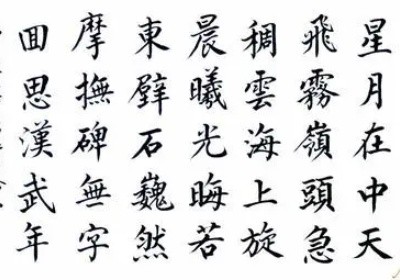 星月在中天
飛霧嶺頭急
稠雲海上旋
晨曦光晦若
東壁石巍然
摩撫碑無字
回思漢武年